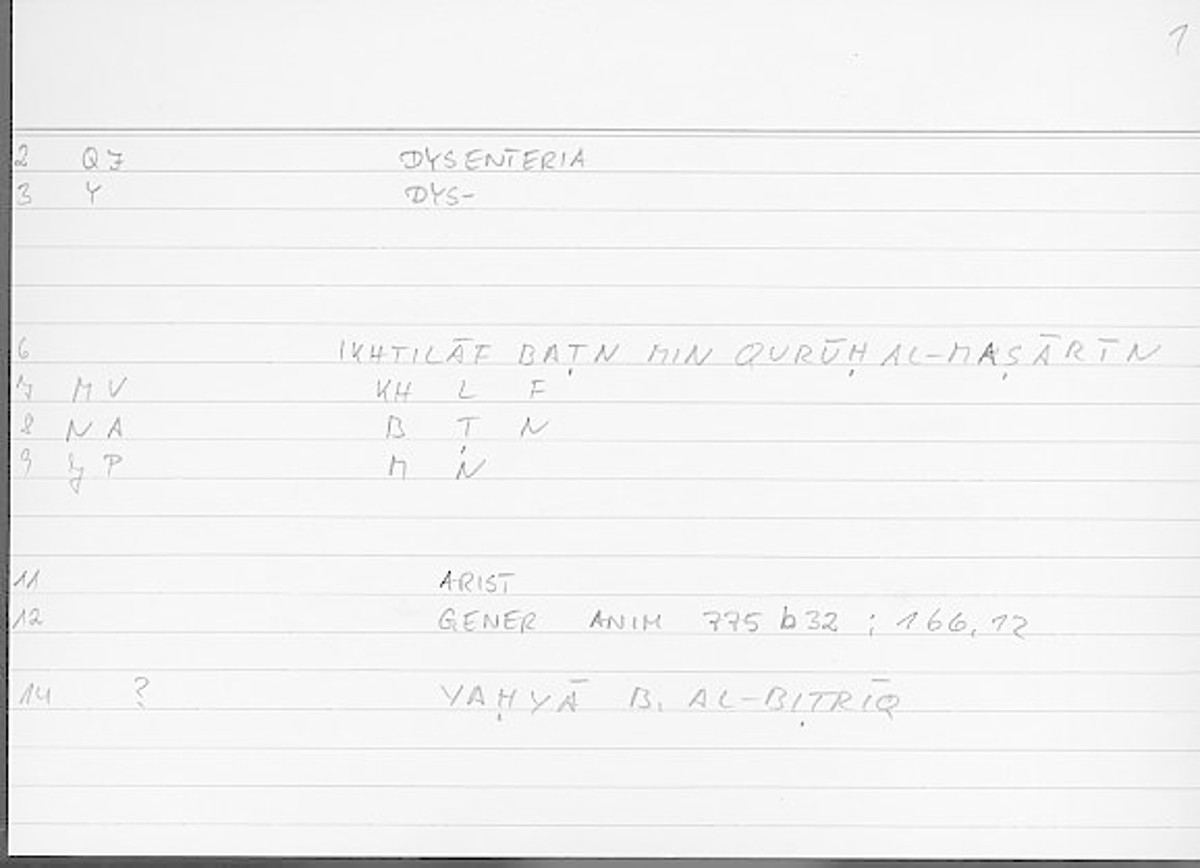 1
2 Q7 DYSENTERIA
3 Y DYS-
6 IKHTILĀF BAṬN MIN QURŪḤ AL-MAṢĀRĪN
7 M V KH L F
8 N A B Ṭ N
9 P M N
11 ARIST
12 GENER ANIM 775 b32 ; 166,12
14 ? YAḤYĀ B. AL-BIṬRĪQ